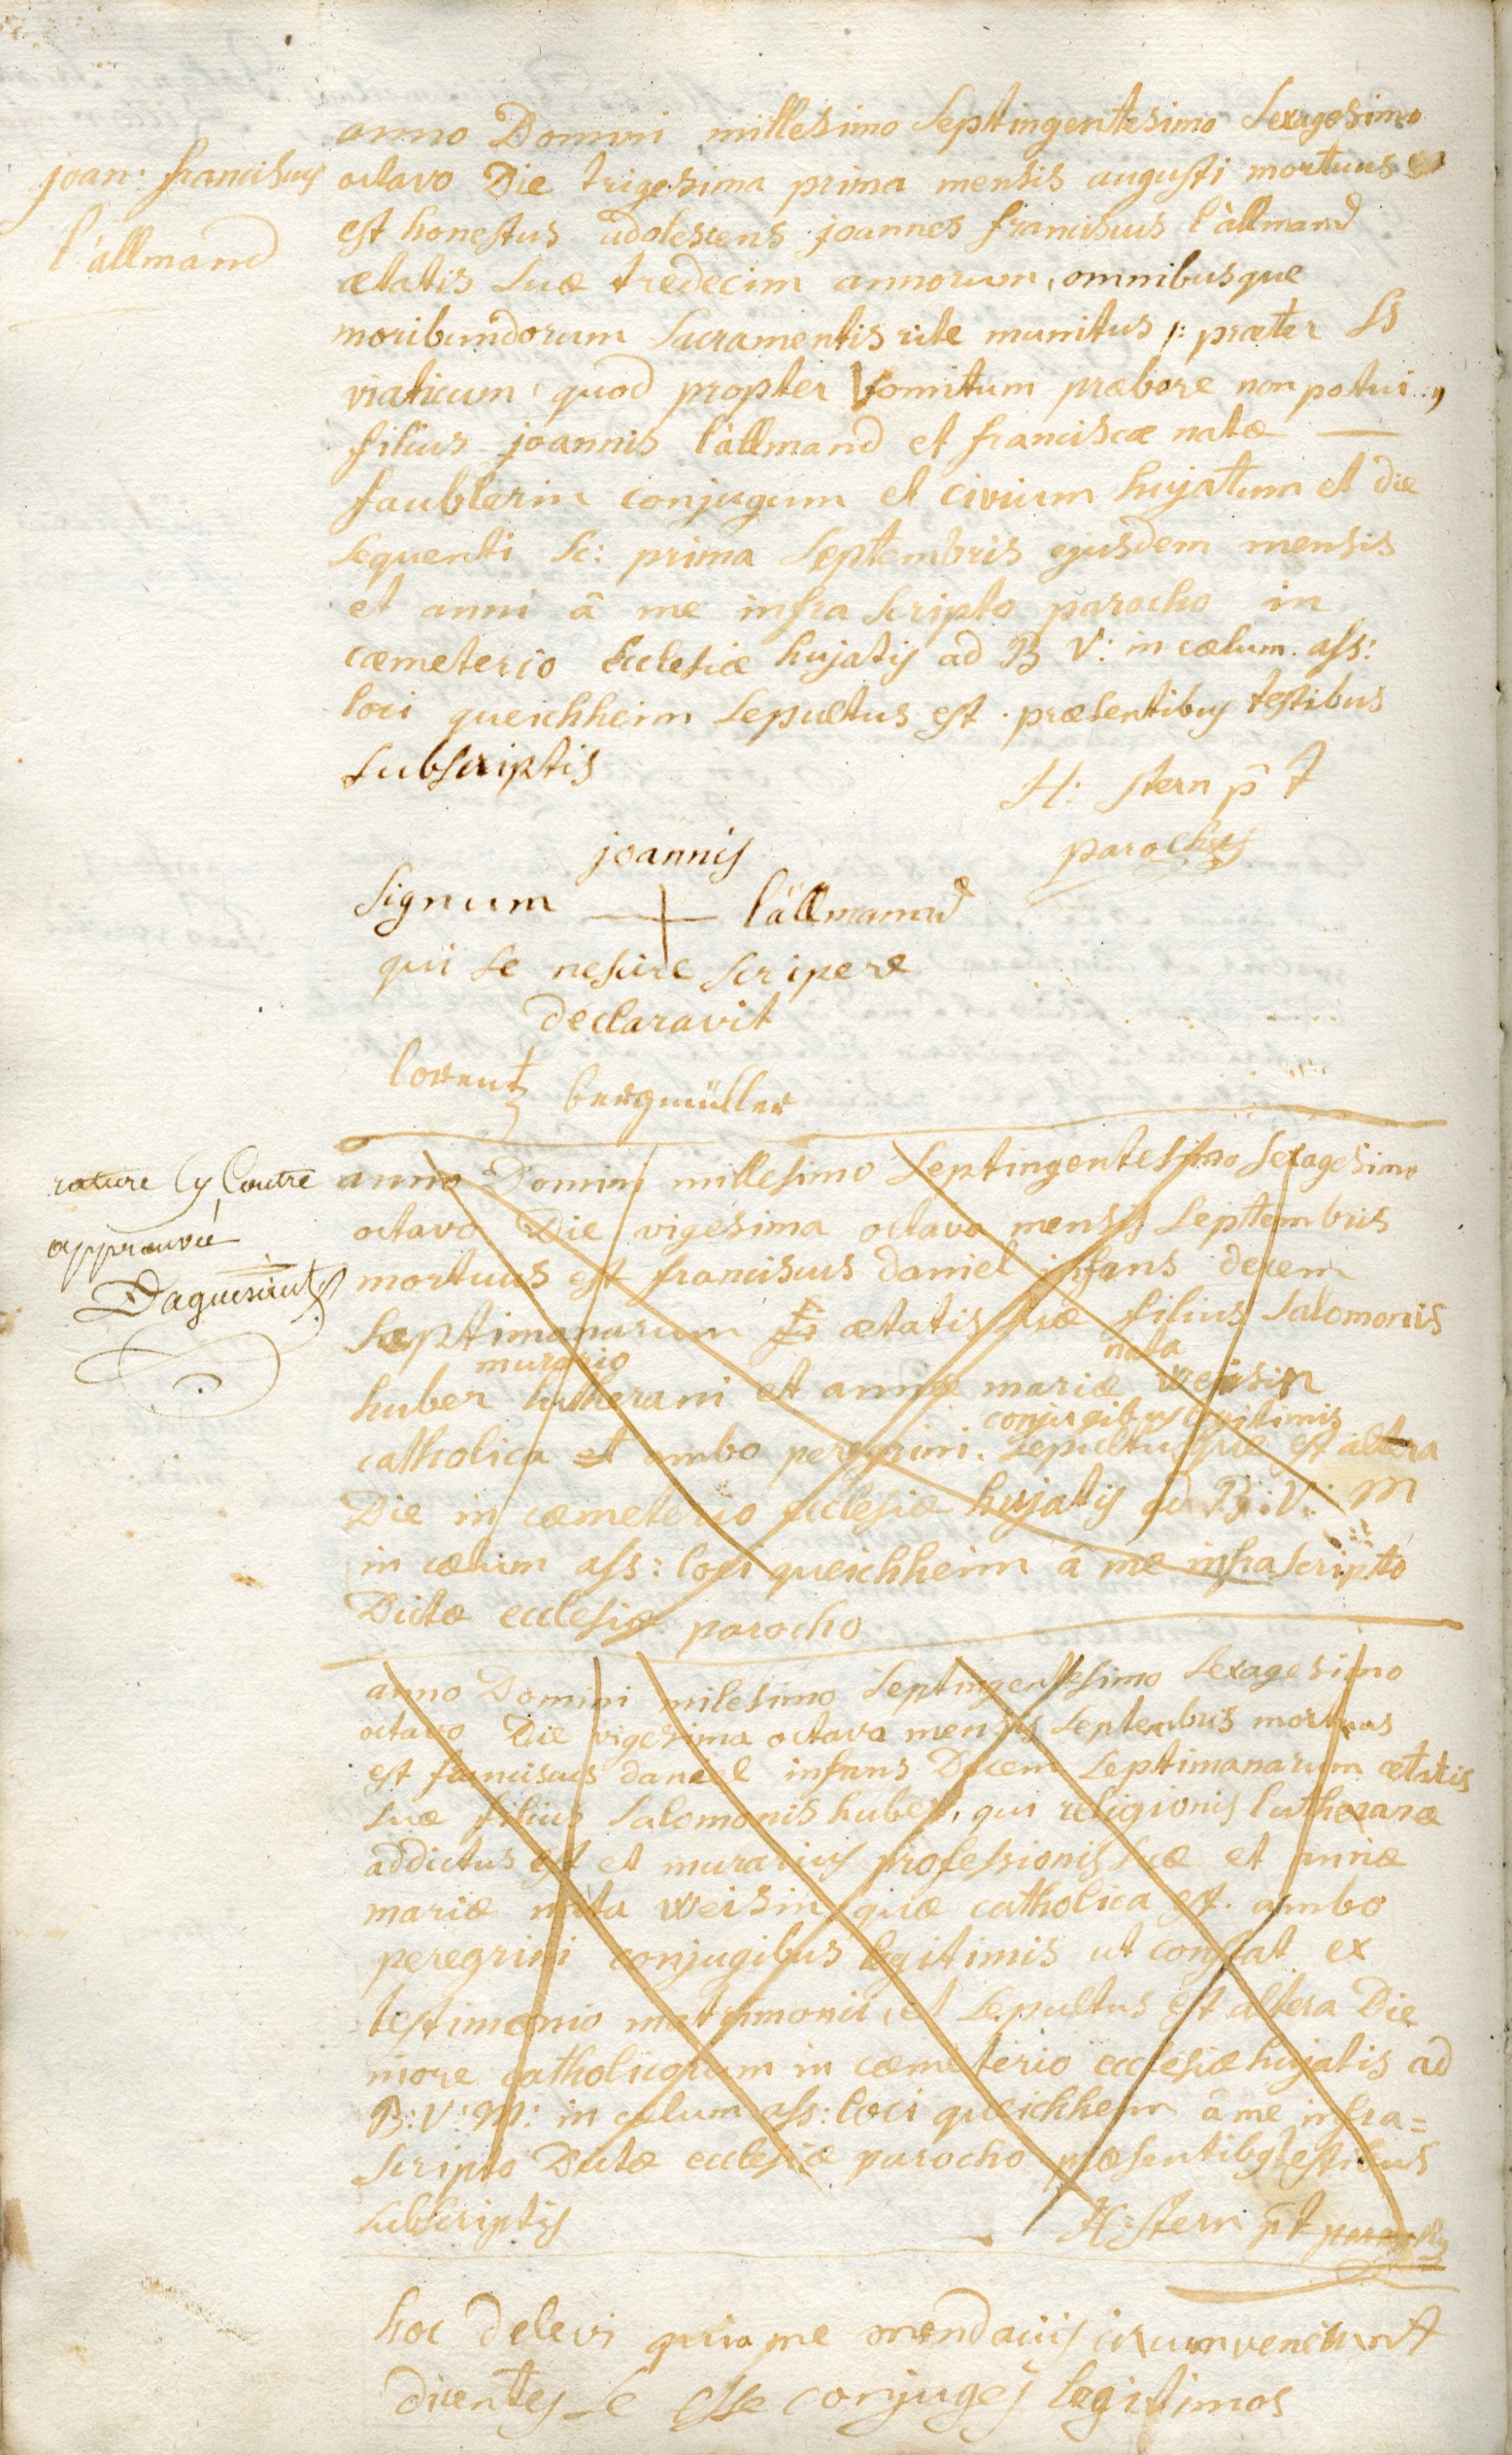 joan: franciscus
l'allmand
anno Domini millesimo septingentesimo sexagesimo
octavo Die trigesima prima mensis augusti mortuus
est honestus adolescens joannes franciscus l'allmand
ætatis suæ tredecim annorum, omnibusque
moribundorum sacramentis rite munitus /: præter SS
viaticum, quod propter vomitum præbere non potui :,
filius joannis l'allmand et franciscæ natæ —
faublerin conjugum et civium hujatum et die
sequenti sc: prima septembris ejusdem mensis
et anni â me infra scripto parocho in
cæmeterio Ecclesiæ hujatis ad B V: in cœlum. ass:
loci queichheim sepultus est. præsentibus testibus
subscriptis
H: stern p t
parochus
joannis
signum + l'allmannd
qui se nescire scripere
declaravit
lorentz bergmüller
rature Cy Contre
approuvée
Daguesseau
anno Domini millesimo septingentesimo sexagesimo
octavo Die vigesima octava mensis septembris
mortuus est franciscus daniel infans decem
septimanarum ætatis suæ filius salomonis
murario nata
huber lutherani et annæ mariæ weisin
conjugibus legitimis
catholica et ambo peregrini. sepultusque est altera
Die in cæmeterio Ecclesiæ hujatis ad B: V: M
in cœlum ass: loci queichheim â me infrascripto
Dictæ ecclesiæ parocho
anno Domini milesimo septingentesimo sexagesimo
octavo Die vigesima octava mensis septembris mortuus
est franciscus daniel infans Decem septimanarum ætatis
suæ filius salomonis huber, qui religionis lutheranæ
addictus est et murarius professionis suæ et annæ
mariæ nata weisin quæ catholica est. ambo
peregrini conjugibus legitimis ut constat ex
testimonio matrimonii, et sepultus est altera Die
more catholicorum in cæmeterio ecclesiæ hujatis ad
B: V: M: in cœlum ass: loci queichheim â me infra=
scripto Dictæ ecclesiæ parocho præsentibq testibus
subscriptis H: stern p t parochus
hoc delevi quia me mendaciis circumvenerunt
dicentes se esse conjuges legitimos